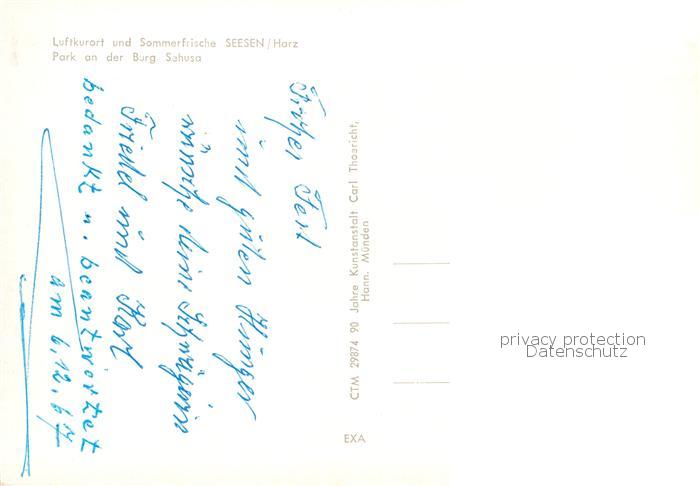 Luftkurort und Sommerfrische SEESEN/Harz
Park an der Burg Sehusa
Frohes Fest
und guten Hunger
wünscht deine Schwägerin
Friedel und Karl
bedankt u. beantwortet
am 6.12.67
CTM 29874 90 Jahre Kunstanstalt Carl Thoericht,
Hann. Münden
EXA
privacy protection
Datenschutz